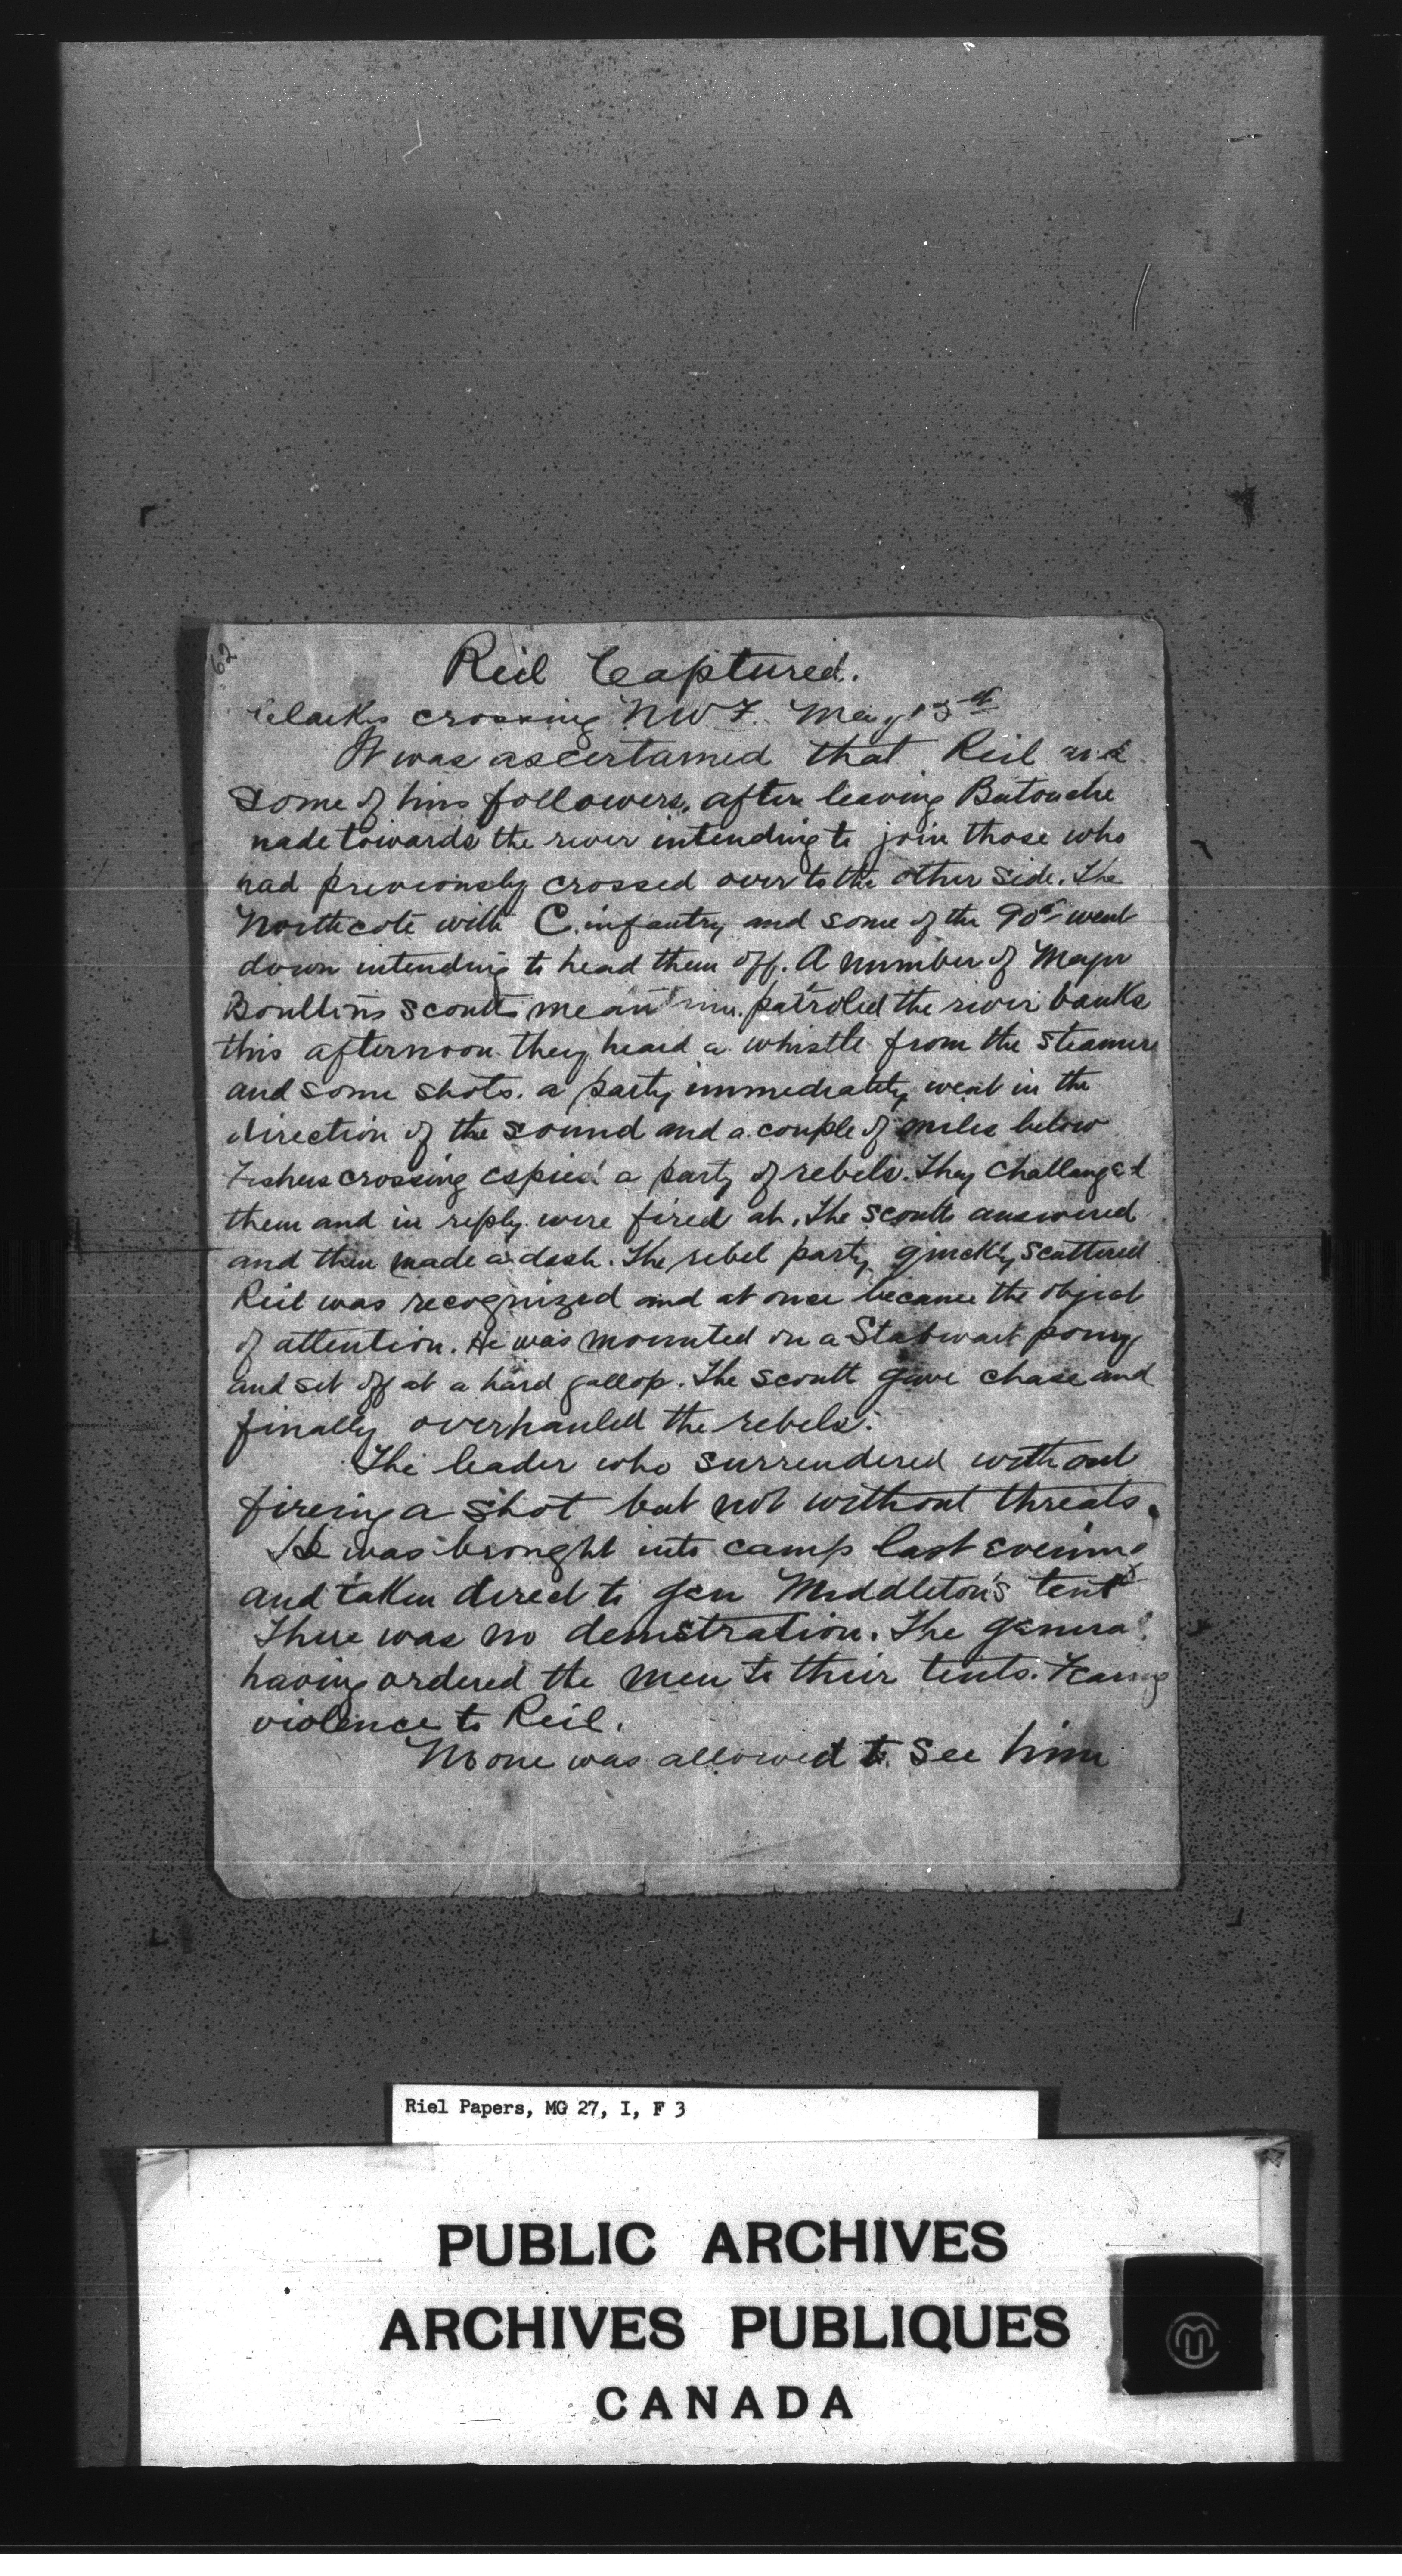 62
Reil Captured.
Clarks crossing NWT. May 15th
It was ascertained that Reil and
some of his followers, after leaving Batouche
made towards the river intending to join those who
had previously crossed over to the other side. The
Northcote with C. infantry and some of the 90th went
down intending to head them off. A number of Major
Boultins scouts meantime patroled the river banks
this afternoon they heard a whistle from the steamer
and some shots. a party immediately went in the
direction of the sound and a couple of miles below
Fishers crossing espied a party of rebels. They challanged
them and in reply were fired at. The scouts answered
and then made a dash. The rebel party quickly scattered
Reil was recognized and at once became the object
of attention. He was mounted on a Stalwart pony
and set off at a hard gallop. The scoutt gave chase and
finally overhauled the rebels.
The leader who surrendered without
fireing a shot but not without threats.
He was brought into camp last evening
and taken direct to Gen Middleton's tent
There was no demstration. The general
having ordered the men to their tents. Fearing
violence to Reil.
No one was allowed to see him
Riel Papers, MG 27, I, F 3
PUBLIC ARCHIVES
ARCHIVES PUBLIQUES
CANADA